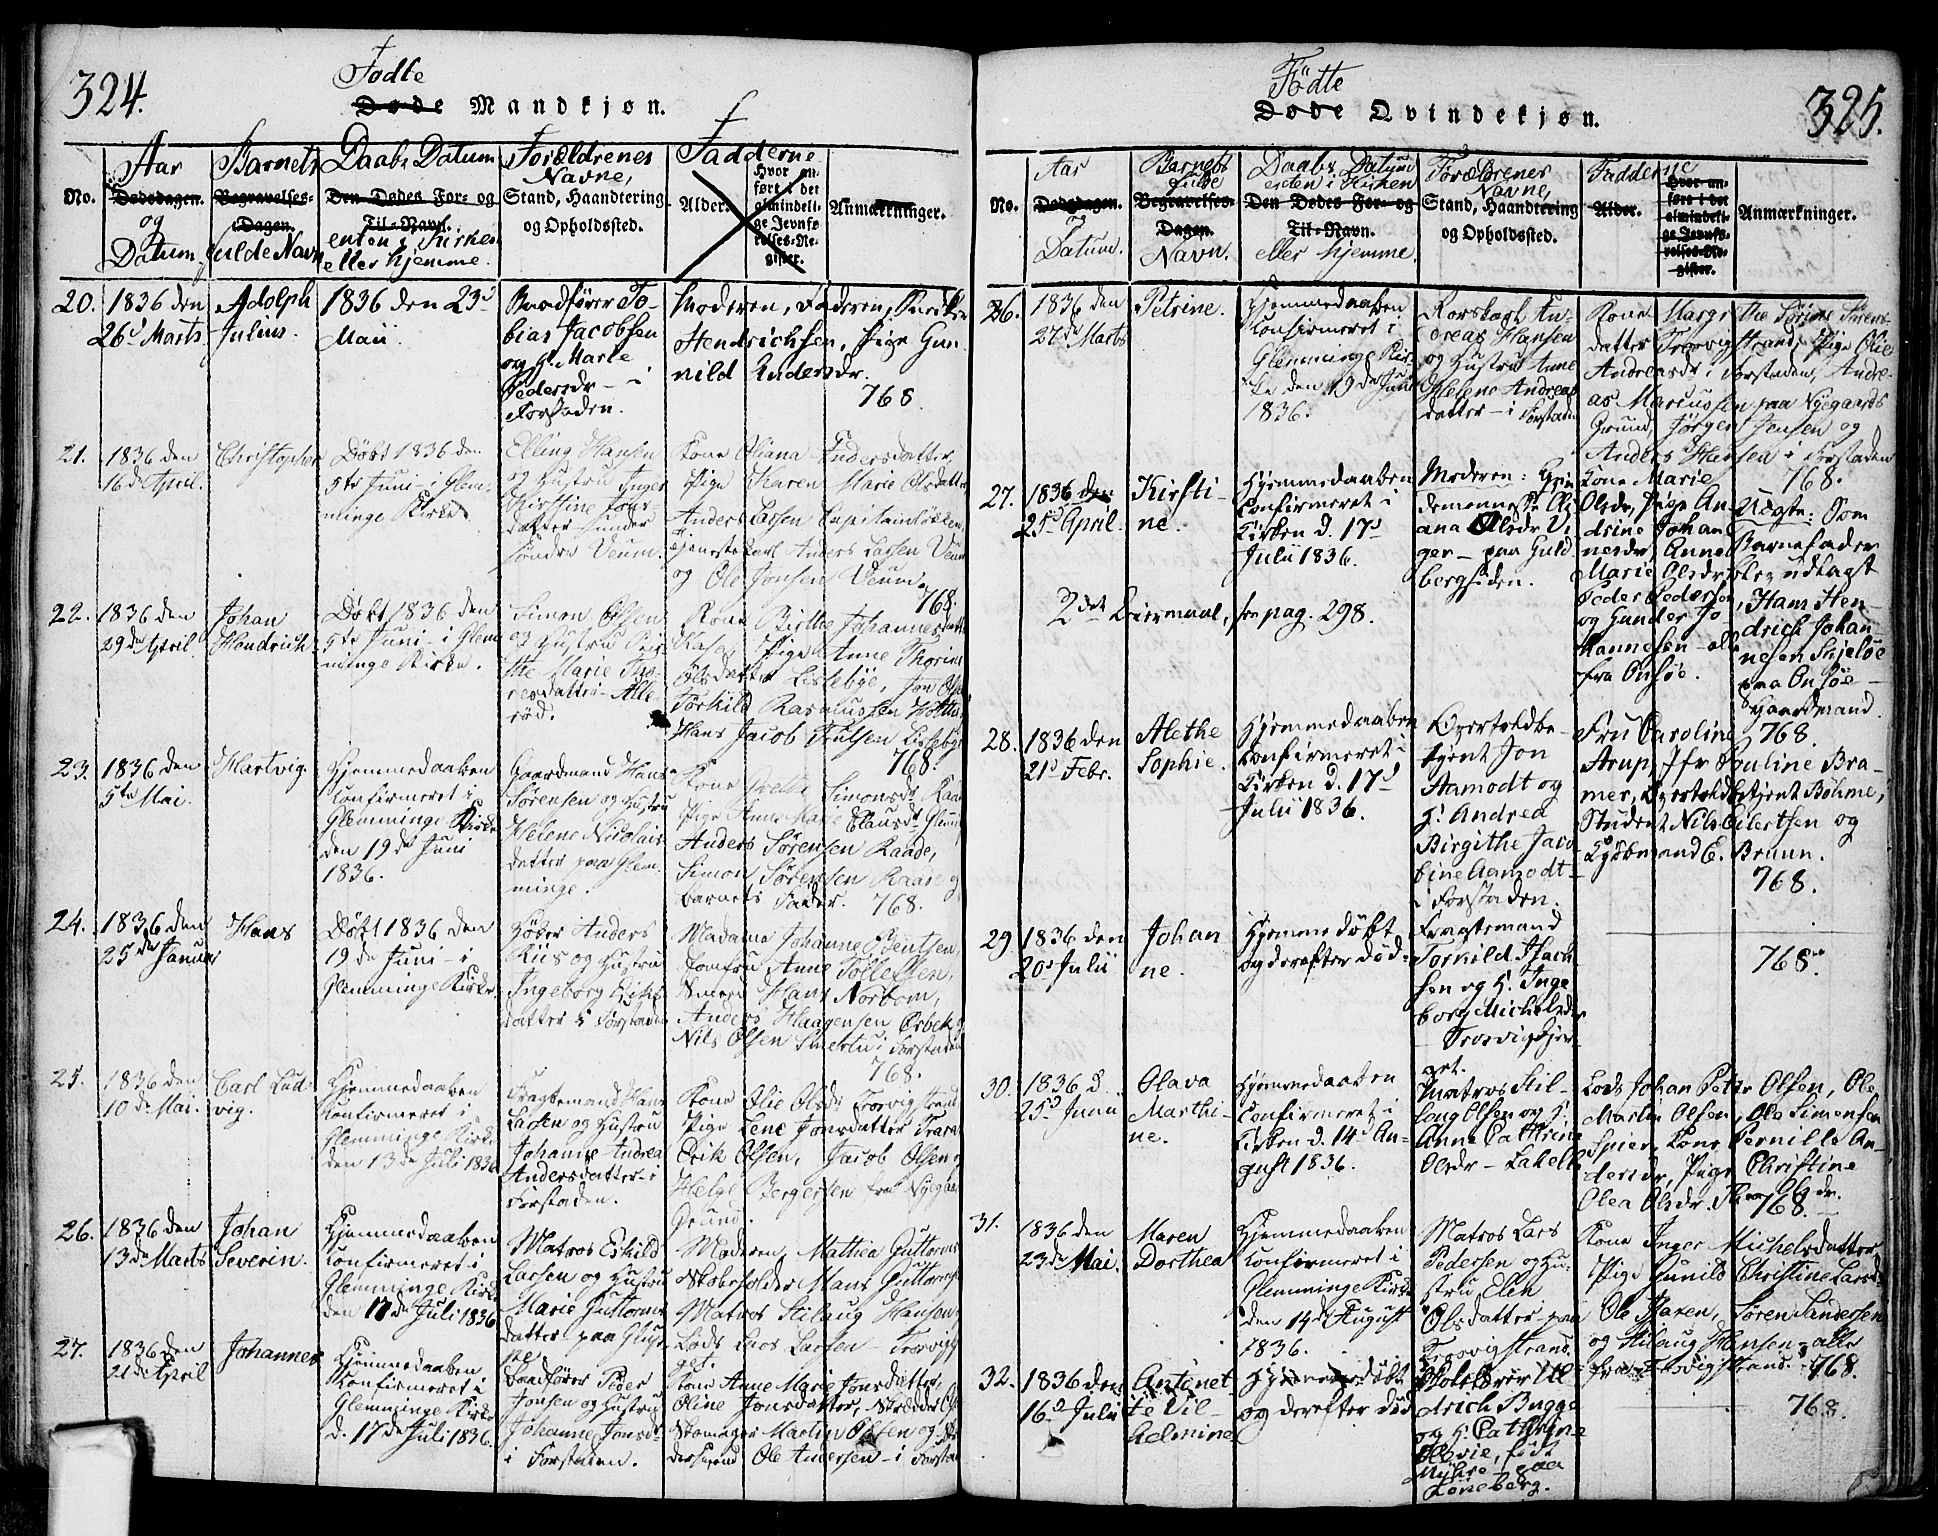 324.
Fødte
Døde Mandkjøn.
Aar
Dødsdagen.
og
Datum
Barnets
Begravelses-
Dagen.
fulde Navn
Daabs Datum
Den Dødes For- og
Til-Navn.
enten i Kirken
eller hjemme.
Forældrenes
Navne,
Stand, Haandtering
og Opholdssted.
Fadderne
Alder.
Hvor an-
ført i det
almindeli-
ge Jevnfø-
relses-Re-
gister.
Anmærkninger.
No.
20.
1836 den
26d Marts
Adolph
Julius.
1836 den 23d
Maii
Baadfører To-
bias Jacobsen
og H. Marte
Pedersdr - i
Forstaden.
Moderen, Faderen,
Hendrichsen, Pige Gun-
nild Andersdr.
768
21.
1836 den
16de April.
Christopher
Døbt 1836 den
5te Juni - i Glem-
minge Kirke.
Elling Hansen
og Hustru Inger
Kirstine Jons-
datter under
søndre Veum.
Kone Oliana Andersdatter
Pige Karen Marie Olsdatter
Anders Larsen Capitainløkken,
Tjenestekarl Anders Larsen Veum
og Ole Jonsen Veum.
768.
22.
1836 den
29de April
Johan
Hendrich
Døbt 1836 den
5te Juni - i Glem
minge Kirke.
Simon Olsen
og Hustru Bir-
the Marie Tho-
resdatter - Alle-
rød.
Kone Birthe Johannesdatter
Pige Anne Thorine
Olsdatter Lislebye, Jon Olsen
Torkild Rasmussen
Hans Jacob Lislebye
768.
23.
1836 den
5te Mai.
Hartvig.
Hjemmedaaben
Konfirmeret i
Glemminge Kirke
den 19de Juni
1836.
Gaardmand Hans
Sørensen og Hustru
Helene Nicolais-
datter paa Glem-
minge.
Kone Simonsdr
Pige Clausdr
Anders Sørensen Raade,
Simon Sørensen Raade og
barnets Fader. 768.
24.
1836 den
25de Januar
Hans
Døbt 1836 den
19de Juni - i
Glemminge Kirke
Anders
Riis og Hustru
Ingeborg Eriks-
datter i Forstaden
Madame Johanne Bentsen,
Jomfru Anne Tollefsen,
Hans Norbom,
Anders Haagensen Ørbek og
Nils Olsen i Forstaden
768.
25.
1836 den
10de Mai.
Carl Lud-
vig.
Hjemmedaaben
Konfirmeret i
Glemminge Kirke
den 13de Juli 1836
Fragtemand Hans
Larsen og Hustru
Johanne Andrea
Andersdatter - i
Forstaden.
Kone Olie Olsdr Trosvigstrand
Pige Lene Jonsdatter
Erik Olsen, Jacob Olsen
Helge Bergersen fra Nygaards
Grund.
26.
1836 den
13de Marts
Johan
Severin.
Hjemmedaaben
Konfirmeret i
Glemminge Kirke
den 17de Juli 1836
Matros Eskild
Larsen og Hustru
Marie Guttorms-
datter paa
Moderen, Mathea Guttorms
Hans Guttorms
Matros Stilaug Hansen,
Lods Lars Larsen -
27.
1836 den
21de April
Johannes
Hjemmedaaben
Konfirmeret i
Glemminge Kirke
d. 17de Juli 1836.
Baadfører Peder
Jonsen og Hustru
Johanne Jonsdr
i Forstaden.
Kone Anne Marie Jonsdatter,
Oline Jonsdatter,
Skomager Martin Olsen og
Ole Andersen - i Forstaden
325.
Fødte
Døde Qvindekjøn.
No.
Aar
Dødsdagen.
og
Datum.
Barnets
fulde
Begravelses-
Dagen.
Navn.
Daabs Datum
enten i Kirken
Den Dødes For- og
Til-Navn.
eller hjemme.
Forældrenes
Navne,
Stand, Haandtering
og Opholdssted.
Fadderne
Alder.
Hvor an-
ført i det
almindeli-
ge Jevnfø-
relses-Re-
gister.
Anmærkninger.
26.
1836 den
27de Marts
Petrine.
Hjemmedaaben
Konfirmeret i
Glemminge Kir-
ke den 19de Juni
1836.
Andreas Hansen
og Hustru Anne
Helene Andreas
datter - i Forstaden
Kone Margrethe Sørine Sørens-
datter Trosvigstrand, Pige Olie
Andreasdr i Forstaden, Andre-
as Marcussen paa Nyegaards
Grund, Jørgen Jensen og
Anders Hansen i Forstaden
768.
27.
1836 den
25d April.
Kirsti-
ne.
Hjemmedaaben
Confirmeret i
Kirken d. 17d
Julii 1836.
Moderen: Grin-
demannes Oli-
ana Olsdr Vi-
ger - paa Guld
bergsiden.
Kone Marie
Olsdr, Pige An-
drine Johan-
nesdr, Anne
Marie Olsdr,
Peder Pedersen
og Gunder Jo-
hannesen - alle
fra Onsøe.
Uægte: Som
Barnefader
blev udlagt
Hans Hen-
drich Johan-
nesen Skjeløe
paa Onsøe -
Gaardmand.
768.
2det Leiermaal, fra pag. 298.
28.
1836 den
21d Febr.
Alethe
Sophie.
Hjemmedaaben
Confirmeret i
Kirken d. 17d
Julii 1836.
Overtoldbe-
tjent Jon
Aamodt og
H. Andrea
Birgithe Jaco-
bine Aamodt -
i Forstaden.
Fru Caroline
Arup, Jfr Pauline Bra-
mer, Overtoldbetjent Böhme,
Student Nils Eilertsen og
Kjøbmand C. Bruun.
768.
29
1836 den
20d Julii
Johan
ne.
Hjemmedöbt
og derefter död.
Fragtemand
Torkild Isach
sen og H. Inge
borg Michelsdr
768
30.
1836 d.
25d Junii
Olava
Marthi-
ne.
Hjemmedaaben
Confirmeret i
Kirken d. 14d Au-
gust 1836.
Matros Stil-
laug Olsen og H.
Anne Cathrine
Olsdr -
Lods Johan Petter Olsen, Ole
Martin Olsen, Ole Simensen
Kone Pernille An-
dersdr, Pige Christine
Olea Olsdr.
768. -
31.
1836 den
23de Mai.
Maren
Dorthea
Hjemmedaaben
Konfirmeret i
Glemminge Kirke
den 14de August
1836.
Matros Lars
Pedersen og Hu-
stru Elen
Olsdatter paa
Trosvigstrand.
Kone Inger Michelsdatter
Pige Gunild Christine Larsdr
Søren Andersen
og Stilaug Hansen - alle
fra Trosvigstrand. 768.
32.
1836 den
16d Julii
Antonet
te Vil
helmine
Hjemmedöbt
og derefter död
drich Bugge
og H. Cathrine
Marie, født
Myhre - paa
768.